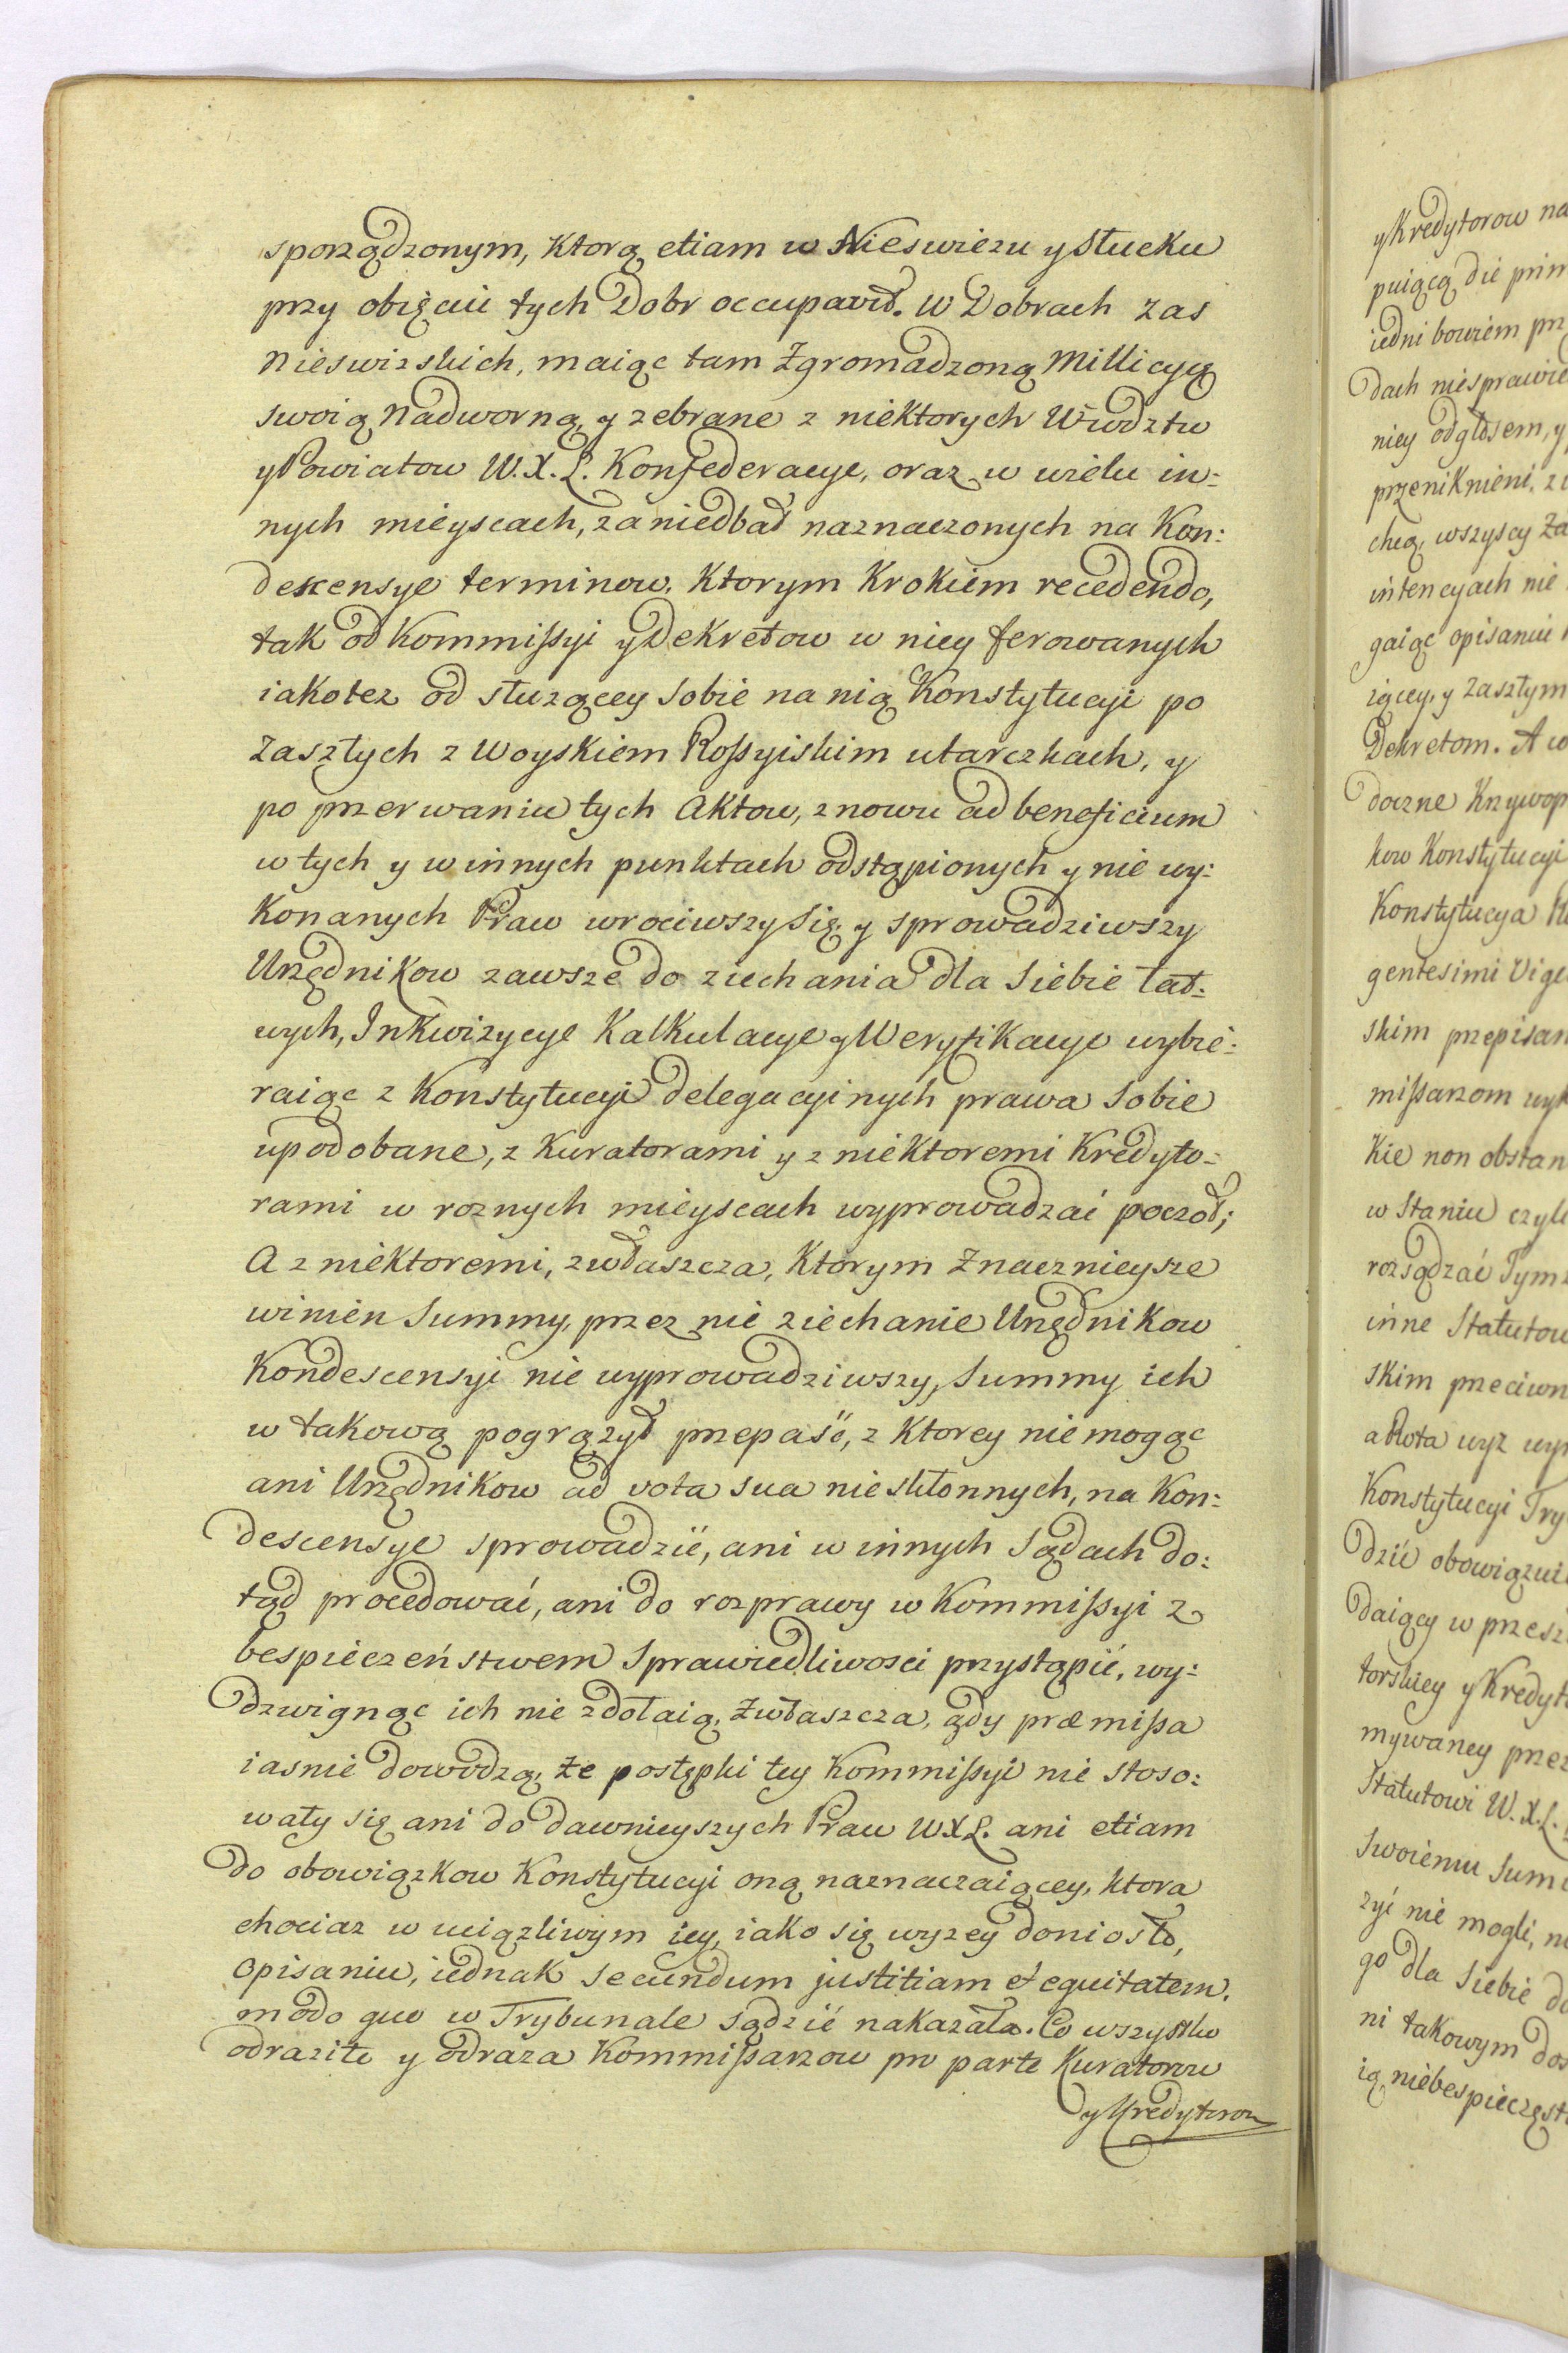 sporządzonym, ktorą etiam w Nieswiezu y Słucku
przy obięciu tych Dobr occupavit. W Dobrach zas
Nieswizskich, maiąc tam Zgromadzoną Millicyą
swoią Nadworną, y zebrane z niektorych Wiwdztw
y Powiatow W. X. L. Konfederacye, oraz w wielu in:
nych mieyscach, zaniedbał naznaczonych na Kon:
descensye terminow. Ktorym Krokiem recedendo,
tak od Kommissyi y Dekretow w niey ferowanych
iakotez od słuzącey sobie na nią Konstytucyi po
zaszłych z Woyskiem Rossyiskim utarczkach, y
po przerwaniu tych Aktow, znowu ad beneficium
w tych y w innych punktach odstąpionych y nie wy:
Konanych Praw wrociwszy się, y sprowadziwszy
Urzędnikow zawsze do ziechania dla siebie łat:
wych, Inkwizycye Kalkulacye y Weryfikacye wybie:
raiąc z Konstytucyi Delegacyinych prawa sobie
upodobane, z Kuratorami y z niektoremi Kredyto:
rami w roznych mieyscach wyprowadzać poczoł;
A z niektoremi, zwłaszcza, Ktorym znacznieysze
winien Summy, przez nie ziechanie Urzędnikow
Kondescensyi nie wyprowadziwszy, Summy ich
w takową pogrązył przepaść, z Ktorey nie mogąc
ani Urzędnikow ad vota sua nieskłonnych, na Kon:
descensye sprowadzić, ani w innych Sądach do:
tąd procedować, ani do rozprawy w Kommissyi z
bespieczeństwem Sprawiedliwosci przystąpić, wy:
dzwignąc ich nie zdołaią, zwłaszcza, gdy præmissa
iasnie dowodzą, ze postępki tey Kommissyi nie stoso:
wały się ani do dawnieyszych Praw WXL. ani etiam
do obowiązkow Konstytucyi oną naznaczaiącey, ktora
chociaz w uciązliwym iey, iako się wyzey doniosło,
opisaniu, iednak secundum justitiam et equitatem,
modo quo w Trybunale sądzić nakazała. Co wszystko
odraziło y odraza Kommissarzow pro parte Kuratorow
y Kredytorow
y Kredytorow na
puiącą die prim
iedni bowiem prz
dach niesprawie
niey odgłosem, y
przeniknieni, z
chcą, wszyscy Za
intencyach nie
gaiąc opisaniu
iącey, y zaszłym
Dekretom. A w
doczne Krzywop
kow Konstytucyi
Konstytucya
gentesimi Vige
skim przepisan
missarzom wyk
Kie non obstan
w Staniu czyli
rozsądzać Tym
inne Statutow
skim przeciwn
a Rota wyz wyr
Konstytucyi Try
dzić obowiązui
daiący w przesz
torskiey y Kredyt
mywaney przez
Statutowi W. X. L.
Swoiemu Sum
zyć nie mogli, n
go dla siebie do
ni takowym dos
ią niebespieczęst